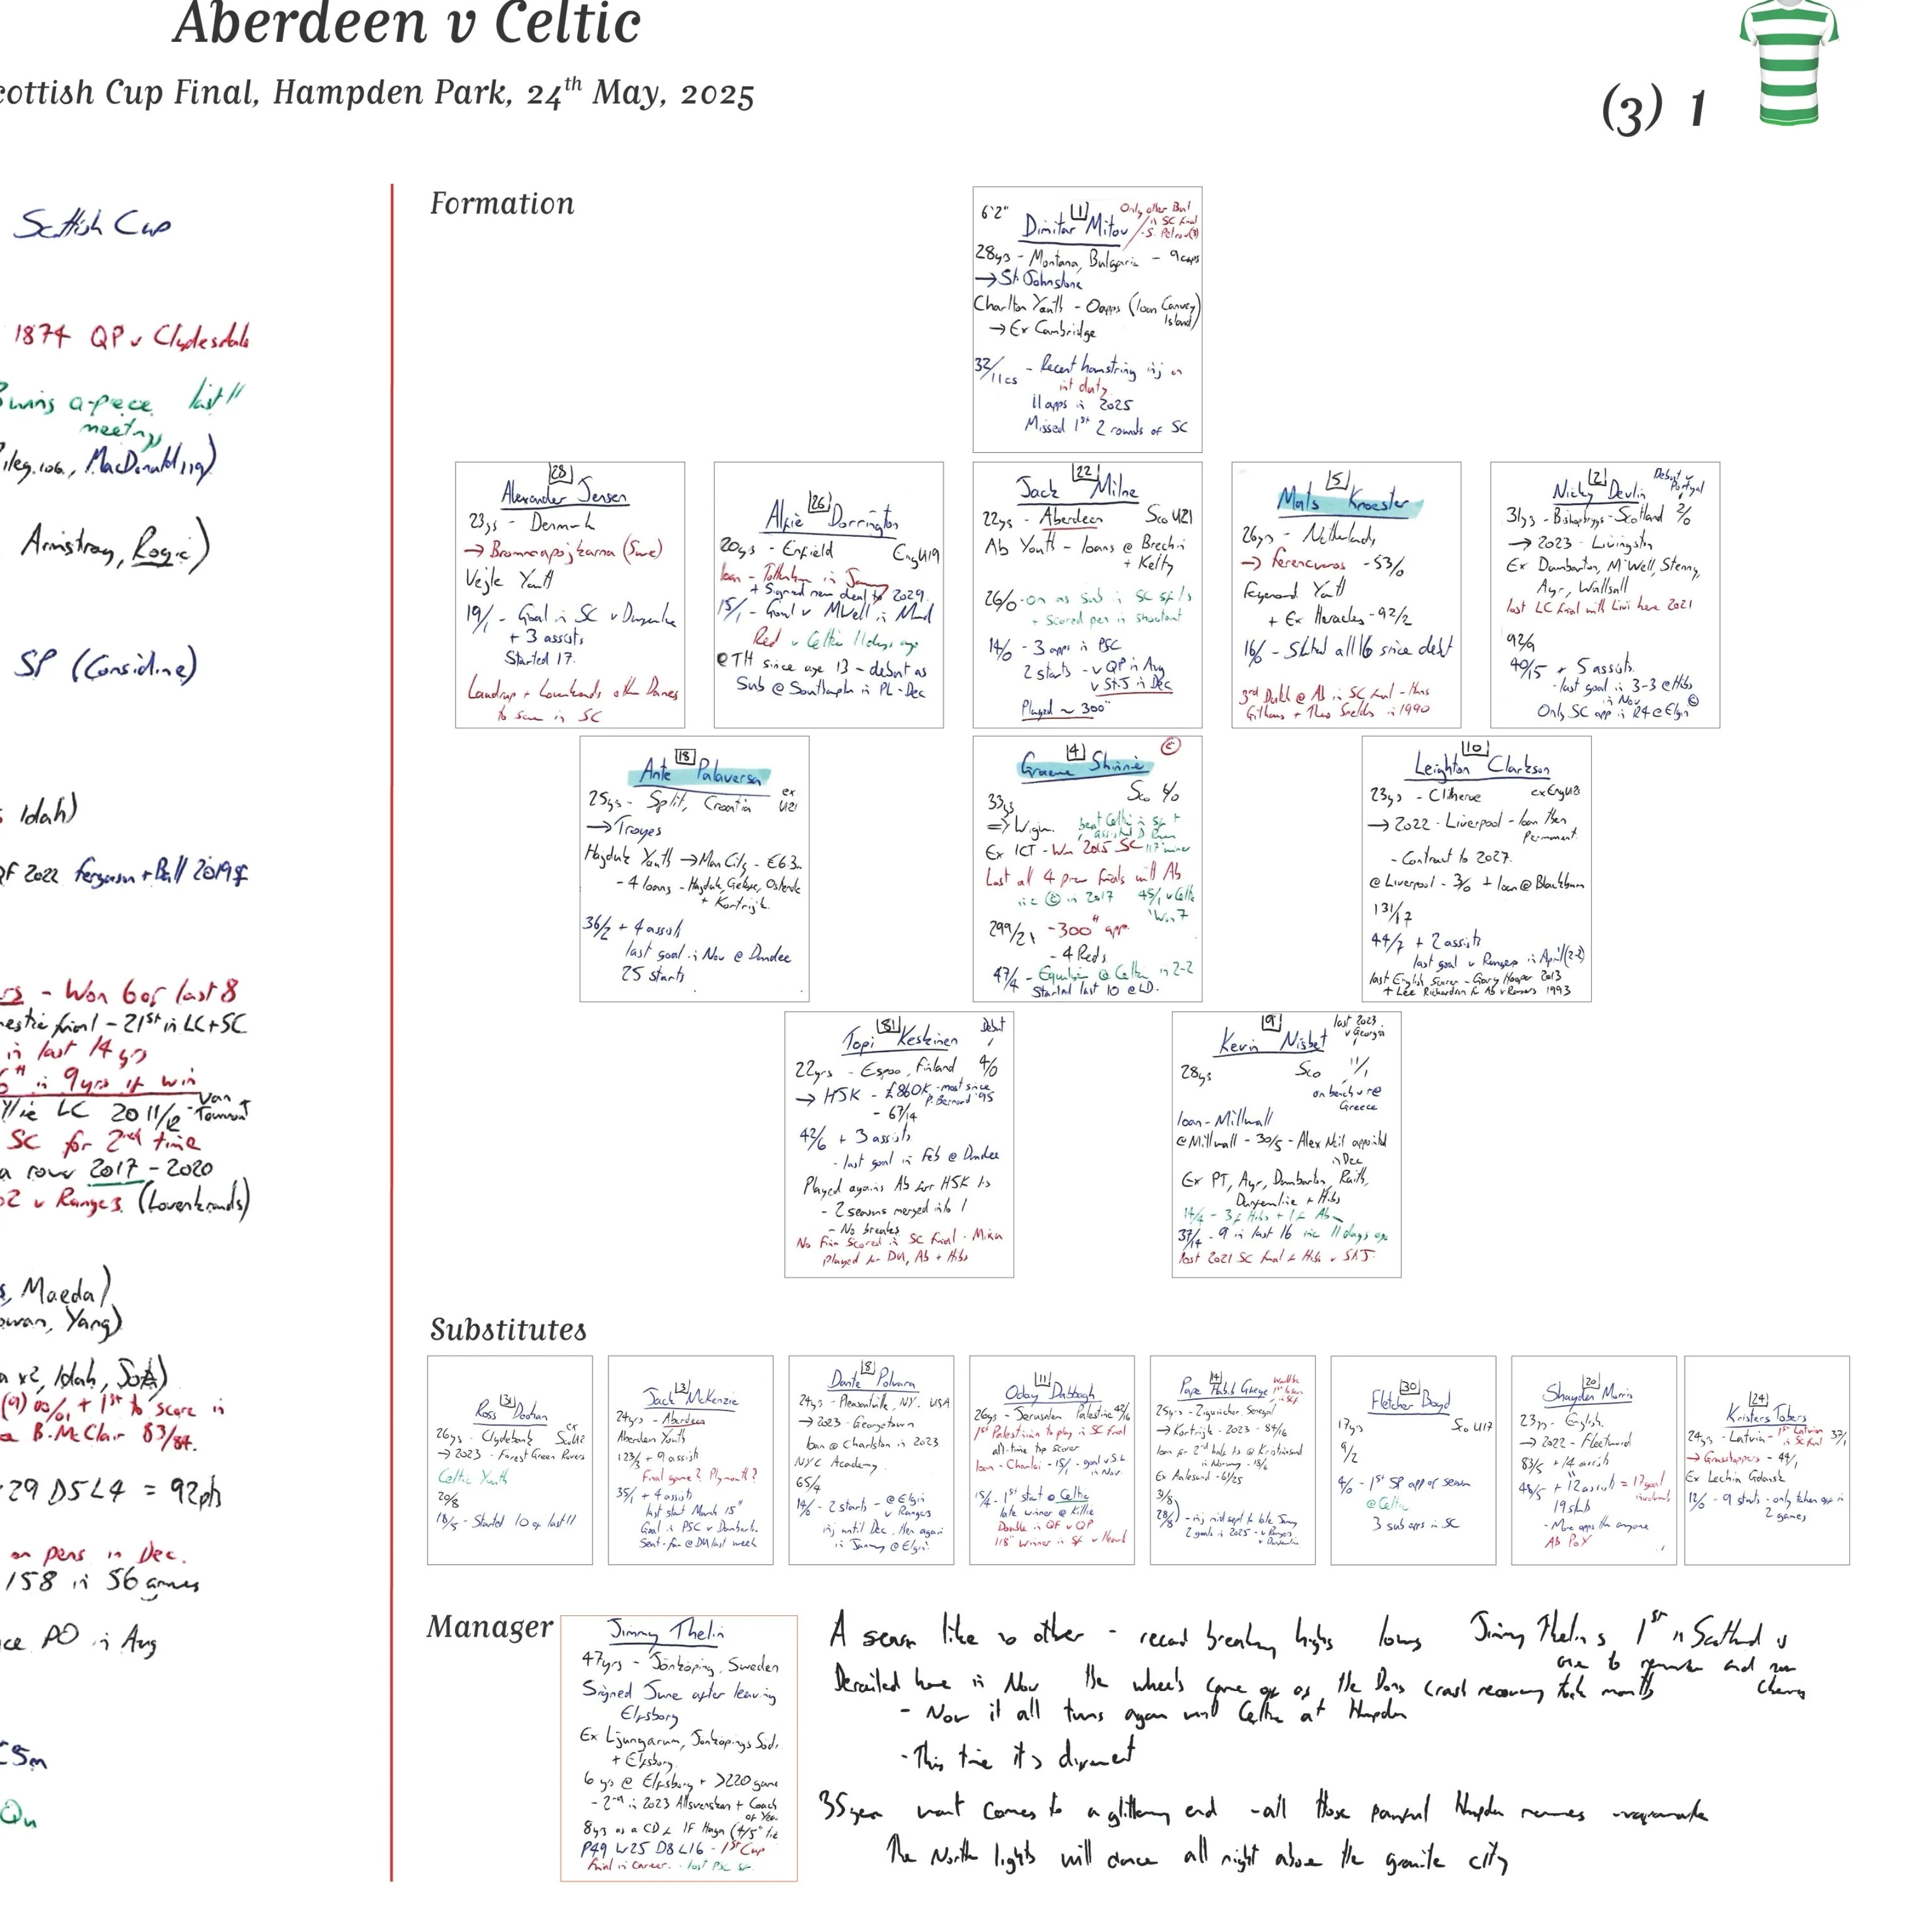 Aberdeen v Celtic
cottish Cup Final, Hampden Park, 24th May, 2025
(3) 1
Scottish Cup
1874 QP v Clydesdale
wins a-piece last 11
meetings
MacDonald 119)
Armstrong, Rogic)
SP (Considine)
Idah)
QF 2022 Ferguson + Ball 2019 SF
- Won 6 of last 8
estic final - 21st in LC+SC
in last 14 yrs
in 9yrs if win
LC 2011/12 - Van Tornout
SC for 2nd time
a row 2017 - 2020
02 v Rangers (Lovenkrands)
Maeda)
Yang)
x2, Idah,
+ 1st to score in
B. McClair 83/84.
29 D5 L4 = 92pts
on pens in Dec.
158 in 56 games
PO in Aug
Formation
6'2" [1] Only other Bul in SC final - S. Petrov (3)
Dimitar Mitov
28yrs - Montana, Bulgaria - 9caps
→ St. Johnstone
Charlton Youth - 0apps (loan Canvey Island)
→ Ex Cambridge
32/11cs - Recent hamstring inj on
int duty
11 apps in 2025
Missed 1st 2 rounds of SC
[28]
Alexander Jensen
23yrs - Denmark
→ Brommapojkarna (Swe)
Vejle Youth
19/1 - Goal in SC v Dunf
+ 3 assists
Started 17.
Laudrup + Lovenkrands other Danes
to score in SC
[26]
Alfie Dorrington
20yrs - Enfield EngU19
loan - Tottenham in January
+ Signed new deal to 2029.
15/1 - Goal v MWell in March
Red v Celtic 11 days ago
@TH since age 13 - debut as
Sub @ Southampton in PL - Dec
[22]
Jack Milne
22yrs - Aberdeen Sco U21
Ab Youth - loans @ Brechin
+ Kelty
26/0 - on as sub in SC
+ scored pen in shootout
14/0 - 3 apps in PSC
2 starts - v QP in Aug
v St.J in Dec
Played ~ 300"
[5]
Mats Knoester
26yrs - Netherlands
→ Ferencvaros - 53/0
Feyenoord Youth
+ Ex Heracles - 92/2
16/0 - Started all 16 since debut
3rd Dutch @ Ab in SC final - Hans
Gillhaus + Theo Snelders in 1990
[2] Debut v Portugal
Nicky Devlin
31yrs - Bishopbriggs - Scotland 2/0
→ 2023 - Livingston
Ex Dumbarton, M'Well, Stenny,
Ayr, Walsall
lost LC final with Livi here 2021
92/9
40/5 + 5 assists
- last goal in 3-3 @ Hibs
in Nov
Only SC app in R4 @ Elgin ©
[18]
Ante Palaversa
25yrs - Split, Croatia ex U21
→ Troyes
Hajduk Youth → Man City - €6.3m
- 4 loans - Hajduk, Getafe, Ostende
+ Kortrijk.
36/2 + 4 assists
last goal in Nov @ Dundee
25 starts
[4] ©
Graeme Shinnie
33yrs Sco 6/0
⇒ Wigan
Ex ICT - Won 2015 SC
Lost all 4 prev finals with Ab
inc © in 2017
299/21 - 300th app.
- 4 Reds
47/4 - Equaliser @ Celtic in 2-2
Started last 10 @ LD.
[10]
Leighton Clarkson
23yrs - Clitheroe ex Eng U21
→ 2022 - Liverpool - loan then
Permanent.
- Contract to 2027.
@ Liverpool - 3/0 + loan @ Blackburn
131/17
44/7 + 2 assists
last goal v Rangers in April (2-2)
last English scorer - Gary Hooper 2013
+ Lee Richardson for Ab v Rangers 1993
[81] Debut
Topi Keskinen
22yrs - Espoo, Finland 4/0
→ HJK - £860K - most since
P. Bernard '95
- 67/14
42/6 + 3 assists
- last goal in Feb @ Dundee
Played against Ab for HJK
- 2 seasons merged into 1
- No breaks
No Finn scored in SC final - Mixu
Played for DU, Ab + Hibs
[9] last 2023 v Georgia
Kevin Nisbet
28yrs Sco 11/1
on bench v Greece
loan - Millwall
@ Millwall - 30/5 - Alex Neil appointed
in Dec
Ex PT, Ayr, Dumbarton, Raith,
Dunfermline + Hibs
14/4 - 3 for Hibs + 1 for Ab
37/14 - 9 in last 16 inc 11 days ago
lost 2021 SC final for Hibs v St.J
Substitutes
[31]
Ross Doohan
26yrs - Clydebank ex Sco U21
→ 2023 - Forest Green Rovers
Celtic Youth
20/8
18/5 - Started 10 of last 11
[3]
Jack McKenzie
24yrs - Aberdeen
Aberdeen Youth
123/3 + 9 assists
Final game? Plymouth?
35/1 + 4 assists
last start March 15th
Goal in PSC v Dumbarton
Sent-for @ DU last week
[8]
Dante Polvara
24yrs - Pleasantville, NY. USA
→ 2023 - Georgetown
loan @ Charleston in 2023
NYC Academy
65/4
14/0 - 2 starts - @ Elgin
v Rangers
inj until Dec, then again
in January @ Elgin
[11]
Oday Dabbagh
26yrs - Jerusalem Palestine 42/16
1st Palestinian to play in SC final
all-time top scorer
loan - Charleroi - 15/1 - goal v StL
in Nov.
15/4 - 1st start @ Celtic
late winner @ Killie
Double in QF v QP
118" winner in SF v Hearts
[14]
Pape Habib Gueye
25yrs - Ziguinchor, Senegal
→ Kortrijk - 2023 - 84/16
loan for 2nd half @ Kristiansund
in Norway - 18/6
Ex Aalesund - 61/25
3/8
28/8 - inj mid sept to late Jan
2 goals in 2025 - v Rangers
[30]
Fletcher Boyd
17yrs Sco U17
9/2
4/0 - 1st SP app of season
@ Celtic
3 sub apps in SC
[20]
Shayden Morris
23yrs - English
→ 2022 - Fleetwood
83/5 + 14 assists
48/5 + 12 assists = 17 goal
involvements
19 starts
- More apps than anyone
Ab PoY
[24]
Kristers Tobers
24yrs - Latvia - 1st Latvian in SC final
→ Grasshoppers - 44/1
Ex Lechia Gdansk
12/0 - 9 starts - only taken off in
2 games
Manager
Jimmy Thelin
47yrs - Jönköping, Sweden
Signed June after leaving
Elfsborg
Ex Ljungarum, Jonkopings Sodra
+ Elfsborg
6 yrs @ Elfsborg + >220 games
- 2nd in 2023 Allsvenskan + Coach
of Year
8yrs as a CD for IF Haga (4/5th tier)
P49 W25 D8 L16 - 1st Cup
final in career. - lost PSC SF
A season like no other - record breaking highs lows Jimmy Thelin's 1st in Scotland is
one to remember and
Derailed here in Nov the wheels came off as the Dons crash recovery took months
- Now it all turns again with Celtic at Hampden
- This time it's different
35 year wait comes to a glittering end - all those painful Hampden memories
The North lights will dance all night above the granite city